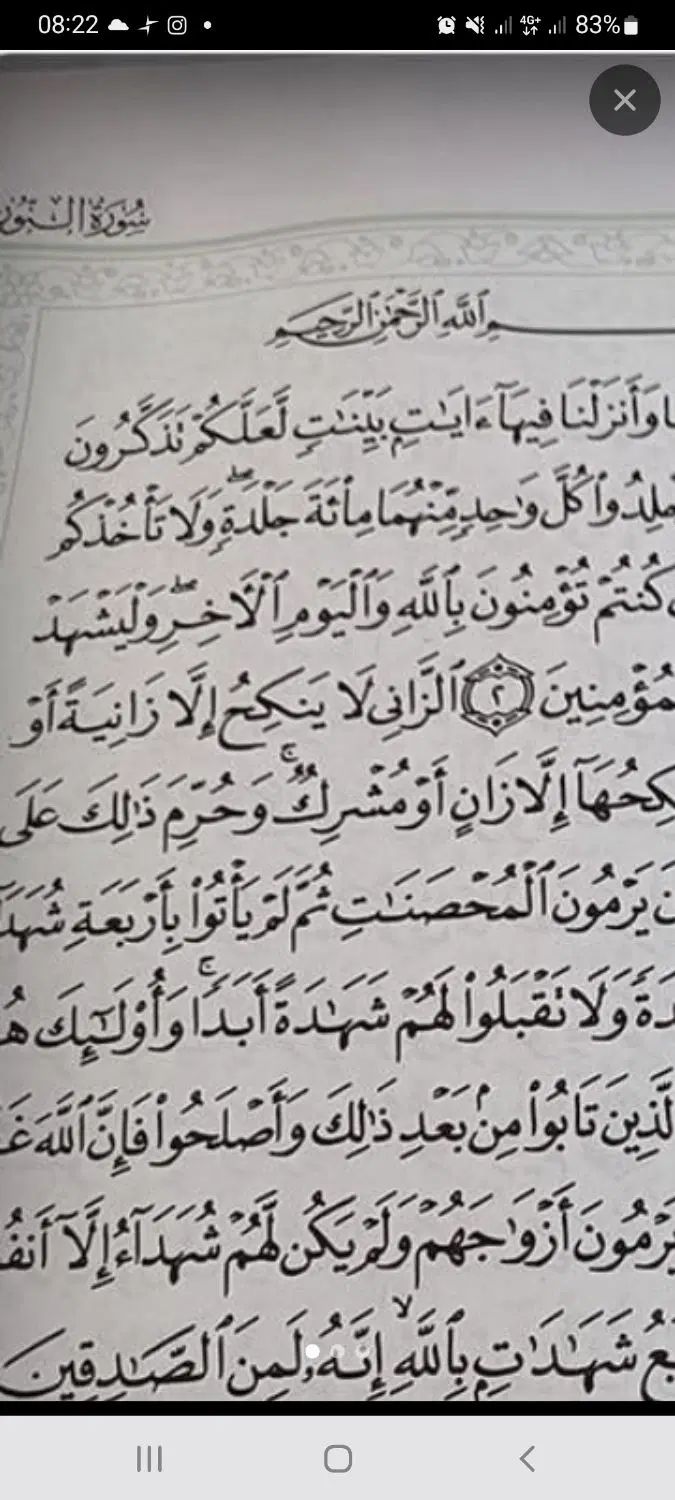 08:22
4G+ 83%
سُورَةُ النُّورِ
ٱللَّهِ ٱلرَّحْمَٰنِ ٱلرَّحِيمِ
وَأَنزَلْنَا فِيهَآ ءَايَٰتٍۭ بَيِّنَٰتٍ لَّعَلَّكُمْ تَذَكَّرُونَ
كُلَّ وَٰحِدٍ مِّنْهُمَا مِا۟ئَةَ جَلْدَةٍ ۖ وَلَا تَأْخُذْكُم
كُنتُمْ تُؤْمِنُونَ بِٱللَّهِ وَٱلْيَوْمِ ٱلْأَخِرِ ۖ وَلْيَشْهَدْ
مُؤْمِنِينَ ٢ ٱلزَّانِى لَا يَنكِحُ إِلَّا زَانِيَةً أَوْ
كِحُهَآ إِلَّا زَانٍ أَوْ مُشْرِكٌ ۚ وَحُرِّمَ ذَٰلِكَ عَلَى
يَرْمُونَ ٱلْمُحْصَنَٰتِ ثُمَّ لَمْ يَأْتُوا۟ بِأَرْبَعَةِ شُهَدَ
دَةً وَلَا تَقْبَلُوا۟ لَهُمْ شَهَٰدَةً أَبَدًا ۚ وَأُو۟لَٰٓئِكَ هُ
لَّذِينَ تَابُوا۟ مِنۢ بَعْدِ ذَٰلِكَ وَأَصْلَحُوا۟ فَإِنَّ ٱللَّهَ غَ
يَرْمُونَ أَزْوَٰجَهُمْ وَلَمْ يَكُن لَّهُمْ شُهَدَآءُ إِلَّآ أَنفُ
بَعُ شَهَٰدَٰتٍۭ بِٱللَّهِ ۙ إِنَّهُۥ لَمِنَ ٱلصَّٰدِقِينَ